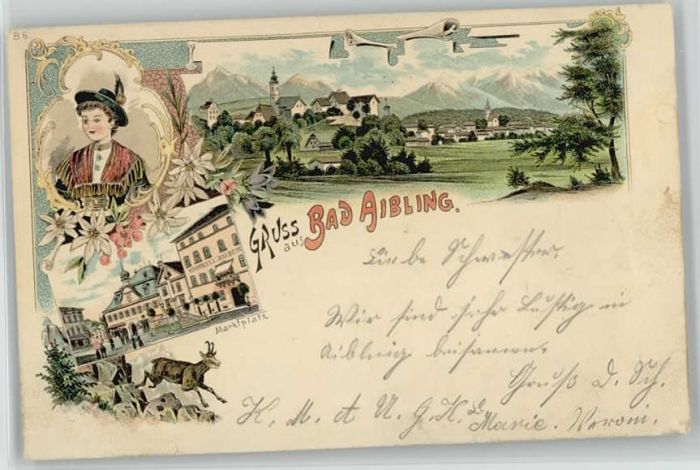 B.6
GRUSS aus BAD AIBLING.
Marktplatz
Liebe Schwester.
Wir sind sehr Lustig in
Aibling beisamen.
Gruß d. Sch.
K. M. A. U. G. K. L.
Marie. Veroni.